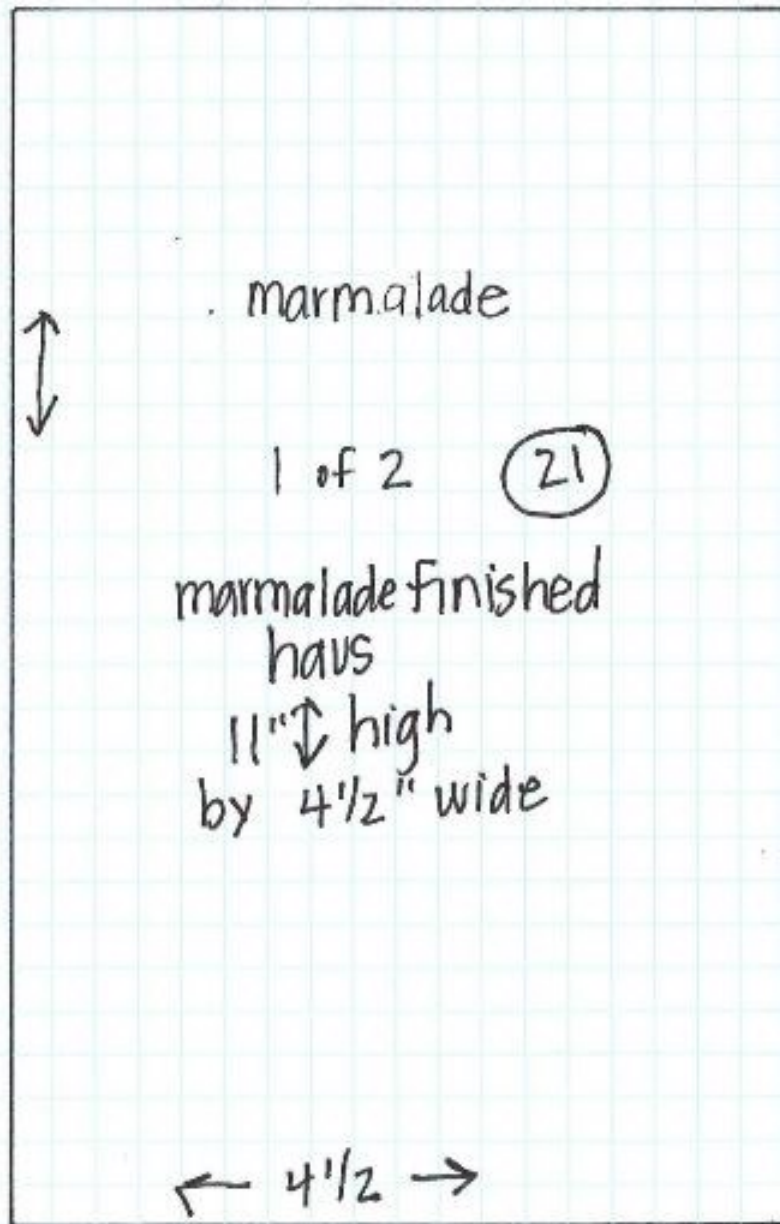 marmalade
1 of 2 21
marmalade finished
haus
11" high
by 4 1/2" wide
4 1/2